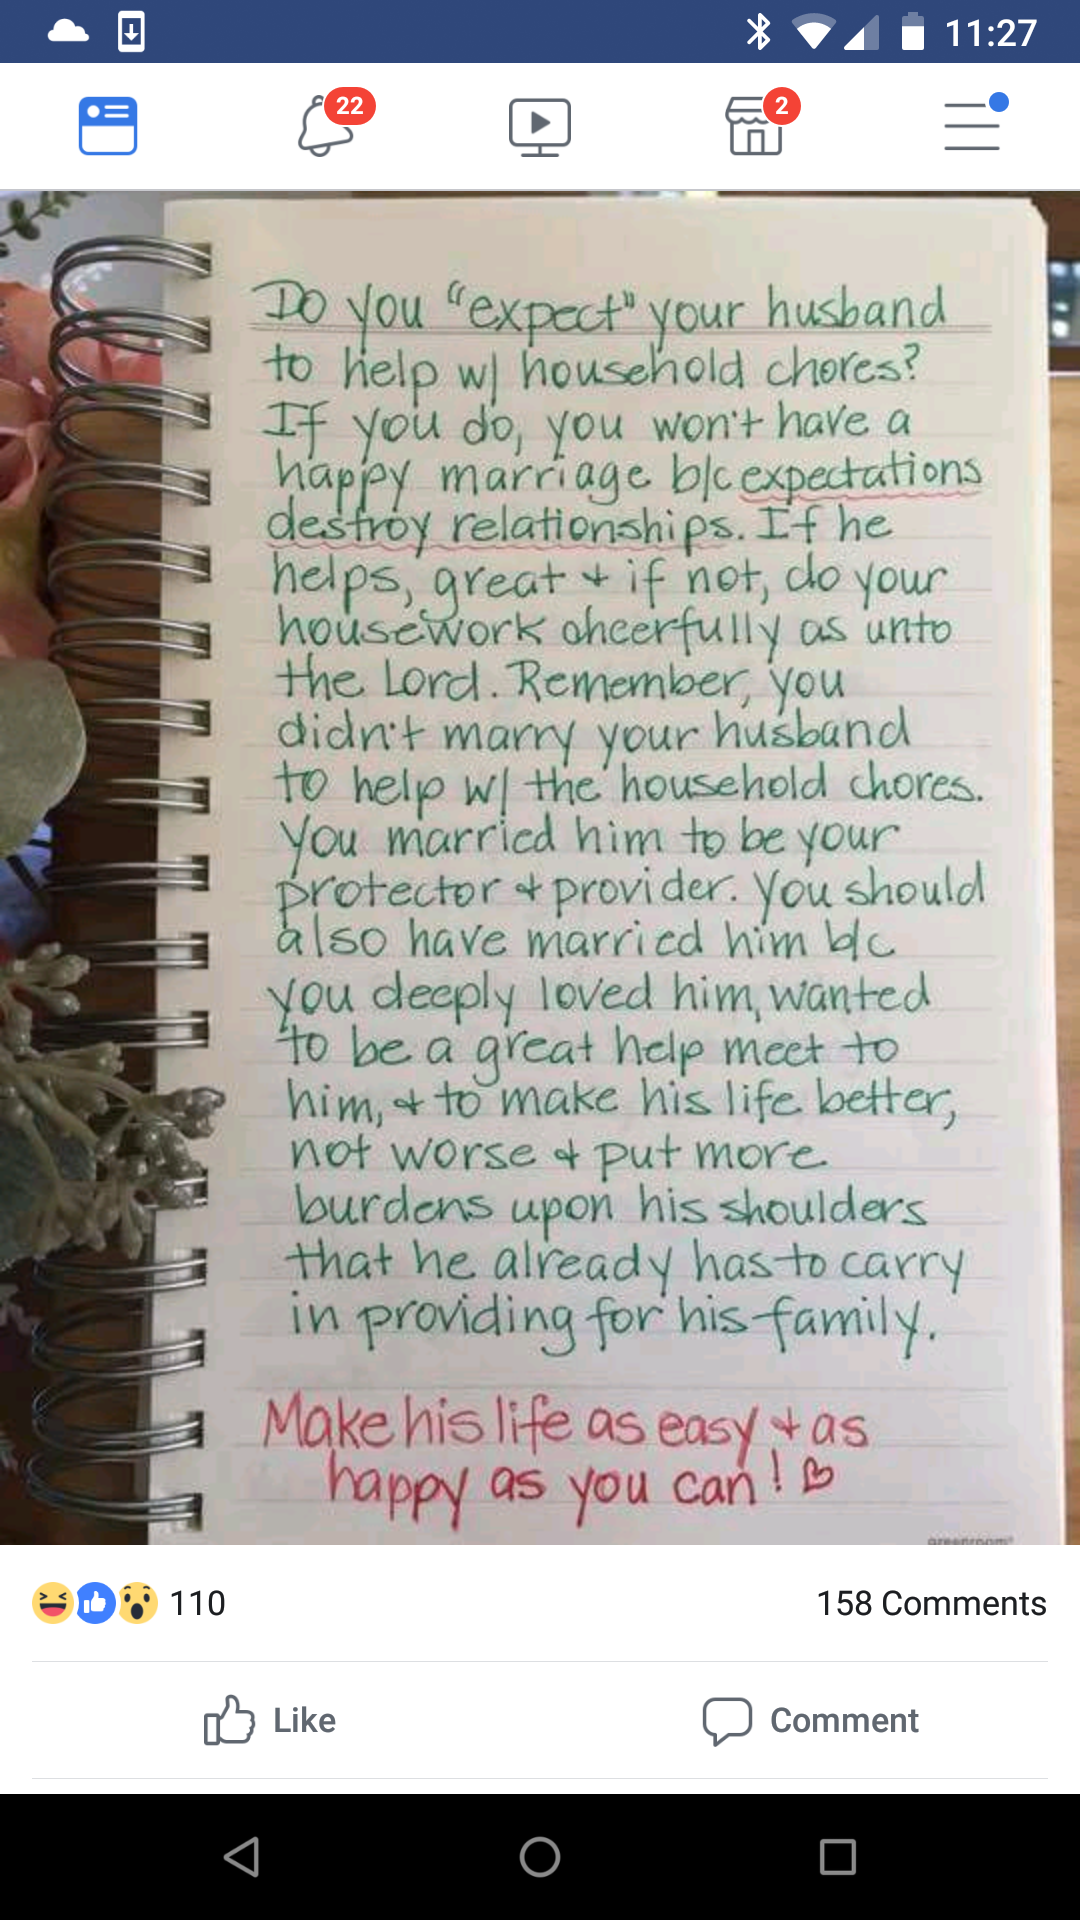 11:27
22
2
Do you "expect" your husband
to help w/ household chores?
If you do, you won't have a
happy marriage b/c expectations
destroy relationships. If he
helps, great + if not, do your
housework cheerfully as unto
the Lord. Remember, you
didn't marry your husband
to help w/ the household chores.
You married him to be your
protector + provider. You should
also have married him b/c
you deeply loved him, wanted
to be a great help meet to
him, + to make his life better,
not worse + put more
burdens upon his shoulders
that he already has to carry
in providing for his family.
Make his life as easy + as
happy as you can! ♡
greenroom®
110
158 Comments
Like
Comment